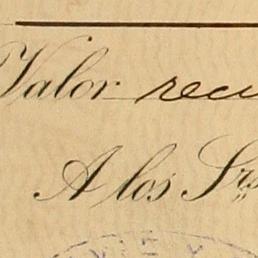 Valor recu
A los Srs